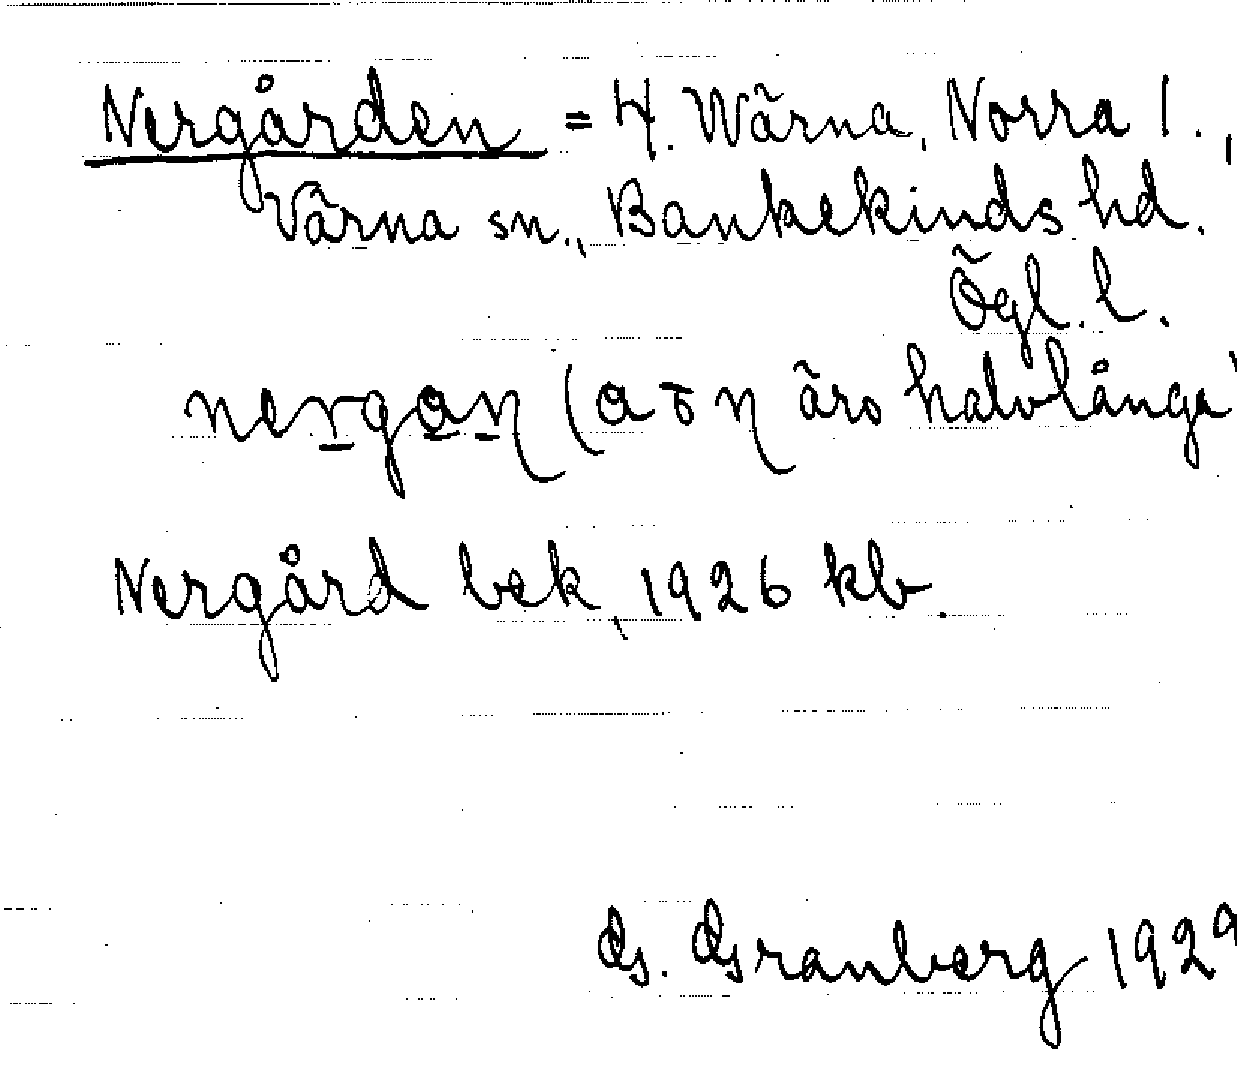 Nergården = 4. Wärna, Norra 1.,
Värna sn., Bankekinds hd.
Ögl. l.
nergaŋ (a o ŋ äro halvlånga
Nergård bek, 1926 kb.
G. Granberg 1929